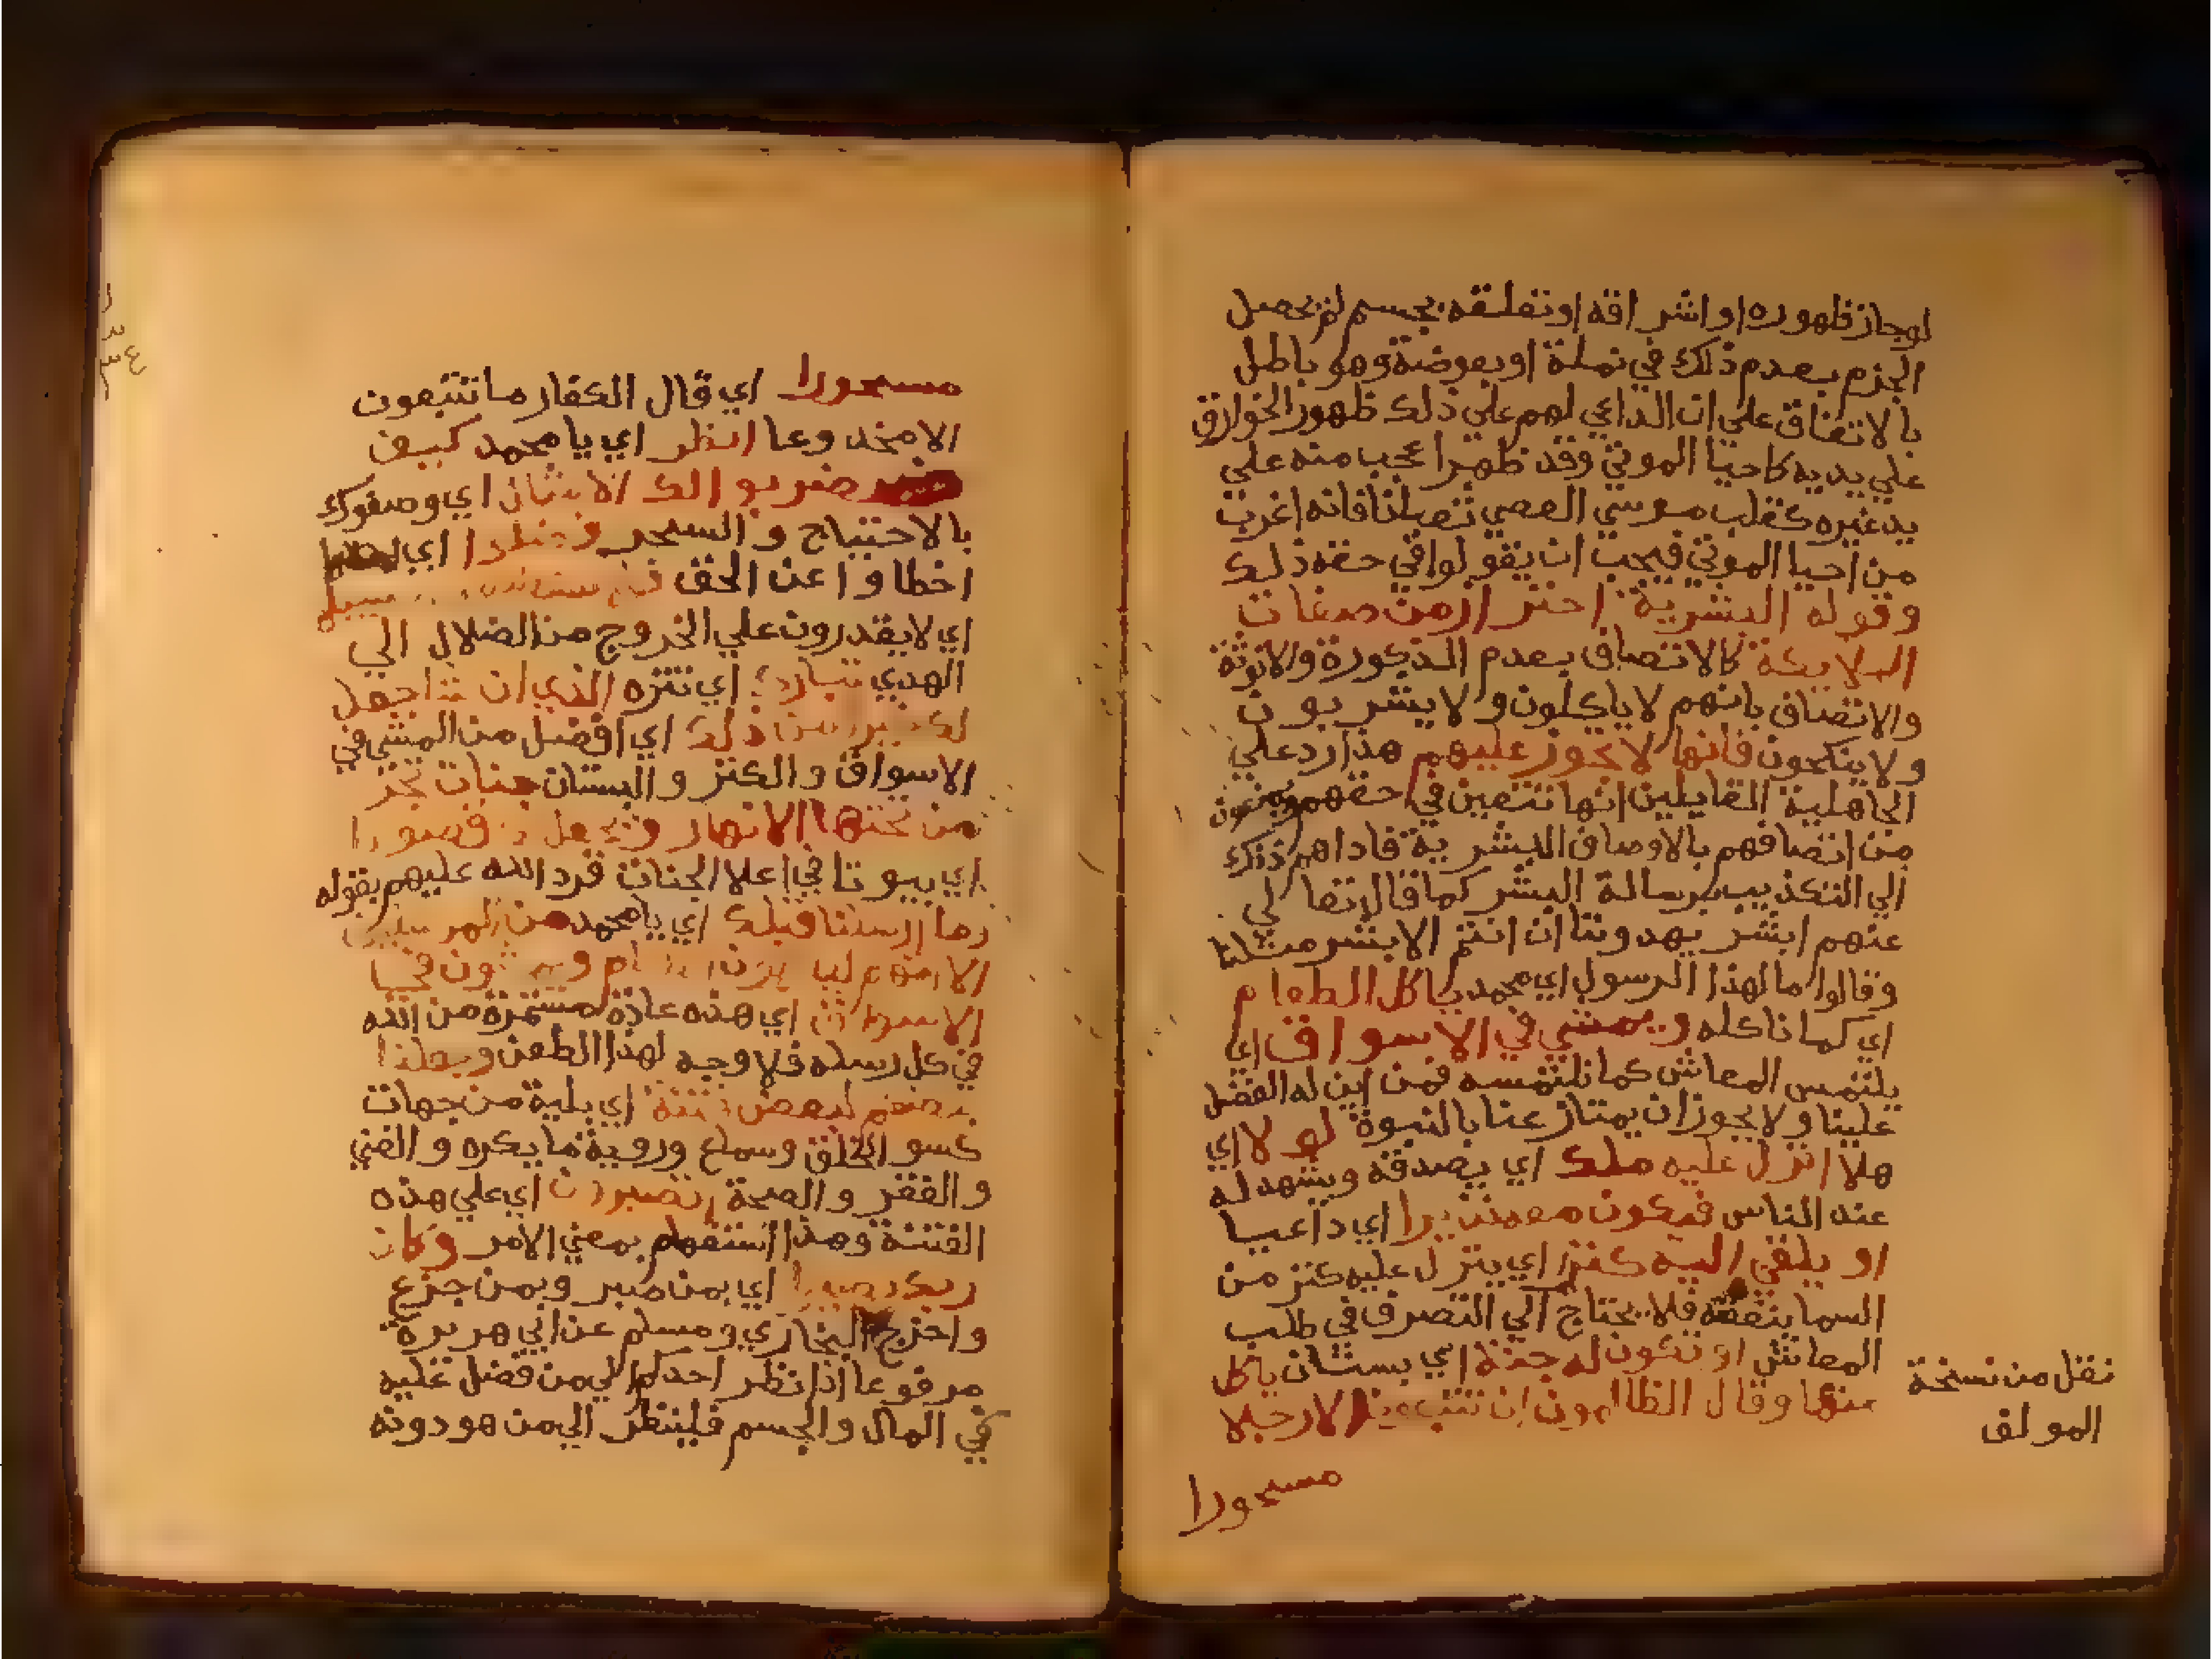 لوجاز ظهوره او اشراقه او تعلقه بجسم لم يحصل
الجزم بعدم ذلك في نملة او بعوضة وهو باطل
بالاتفاق علي ان الداعي لهم علي ذلك ظهور الخوارق
علي يديه كاحيا الموتي وقد ظهر اعجب منه علي
يد غيره كقلب موسي العصي ثعبانا فانه اغرب
من احيا الموتي فيجب ان يقولوا في حقه ذلك
وقوله البشرية احترازمن صفات
الملايكة كالاتصاف بعدم الذكورة والانوثة
والاتصاف بانهم لا ياكلون ولا يشربون
ولا ينكحون فانها لا تجوز عليهم هذا رد علي
الجاهلية القايلين انها تتعين في حقهم ويمنعون
من اتصافهم بالاوصاف البشرية فاداهم ذلك
الي التكذيب برسالة البشر كما قال تعالي
عنهم ابشر يهدوننا ان انتم الا بشر مثلنا
وقالوا مالهذا الرسول اي محمد ياكل الطعام
اي كما ناكله ويمشي في الاسواق اي
يلتمس المعاش كما نلتمسه فمن اين له الفضل
علينا ولا يجوز ان يمتاز عنا بالنبوة لولا اي
هلا انزل عليه ملك اي يصدقه ويشهد له
عند الناس فيكون معه نذيرا اي داعيا
او يلقي اليه كنز اي ينزل عليه كنز من
السما ينفقه فلا يحتاج الي التصرف في طلب
المعاش او تكون له جنة اي بستان ياكل
منها وقال الظالمون ان تتبعون الا رجلا
مسحورا
نقل من نسخة
المولف
مسحورا اي قال الكفار ما تتبعون
الا مخدوعا انظر اي يا محمد كيف
ضربوا لك الامثال اي وصفوك
بالاحتياج والسحر فضلوا اي
اخطاوا عن الحق فلا يستطيعون سبيلا
اي لا يقدرون علي الخروج من الضلال الي
الهدي تبارك اي تنزه الذي ان شا جعل
لك خيرا من ذلك اي افضل من المشي في
الاسواق والكنز والبستان جنات تجر
من تحتها الانهار ويجعل لك قصورا
اي بيوتا في اعلا الجنات فرد الله عليهم بقوله
وما ارسلنا قبلك اي يا محمد من المرسلين
الا انهم لياكلون الطعام ويمشون في
الاسواق اي هذه عادة مستمرة من الله
في كل رسله فلا وجه لهذا الطعن وجعلنا
بعضكم لبعض فتنة اي بلية من جهات
كسو الخلق وسماع وروية ما يكره والغني
والفقر والصحة اتصبرون اي علي هذه
الفتنة وهذا استفهام بمعني الامر وكان
ربك بصيرا اي بمن صبر وبمن جزع
واخرج البخاري ومسلم عن ابي هريرة
مرفوعا اذا نظر احدكم الي من فضل عليه
في المال والجسم فلينظر الي من هو دونه